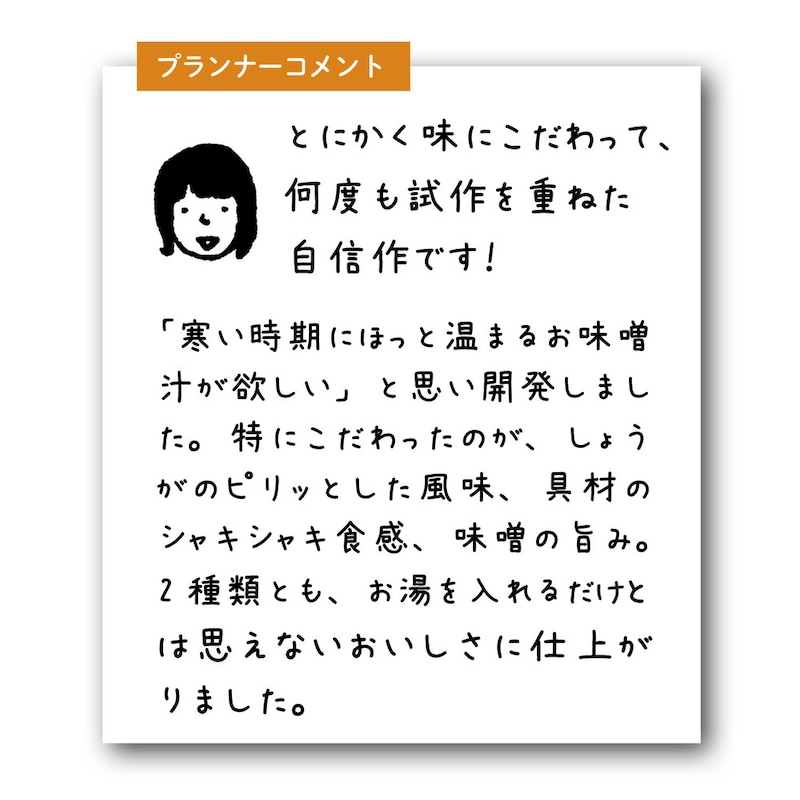 プランナーコメント
とにかく味にこだわって、
何度も試作を重ねた
自信作です!
「寒い時期にほっと温まるお味噌
汁が欲しい」と思い開発しまし
た。特にこだわったのが、しょう
がのピリッとした風味、具材の
シャキシャキ食感、味噌の旨み。
2種類とも、お湯を入れるだけと
は思えないおいしさに仕上が
りました。